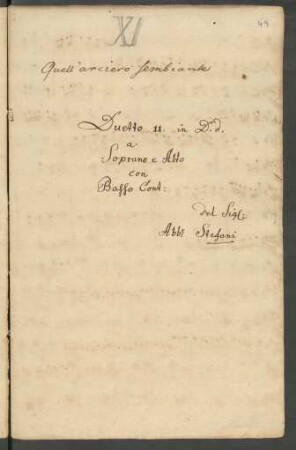 49
XI
Quell'arciero sembiante
Duetto 11. in D. d.
a
Soprano e Alto
con
Basso Cont:
del Sigl:
Abb. Stefani